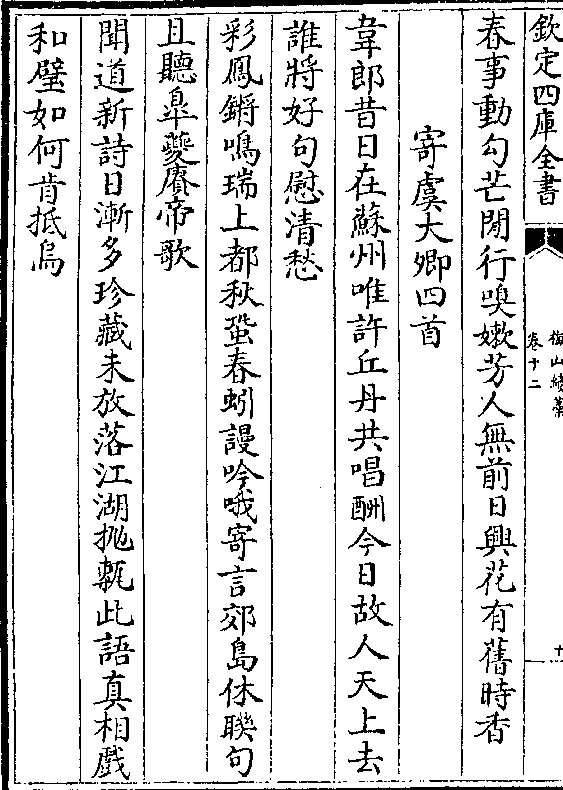 欽定四庫全書
梅山續藁
卷十二
十
春事動勾芒閒行嗅嫩芳人無前日興花有舊時香
寄虞大卿四首
韋郎昔日在蘇州唯許丘丹共唱酬今日故人天上去
誰將好句慰清愁
彩鳳鏘鳴瑞上都秋蛩春蚓謾吟哦寄言郊島休聯句
且聽臯夔賡帝歌
聞道新詩日漸多珍藏未放落江湖抛甎此語真相戲
和璧如何肯抵烏